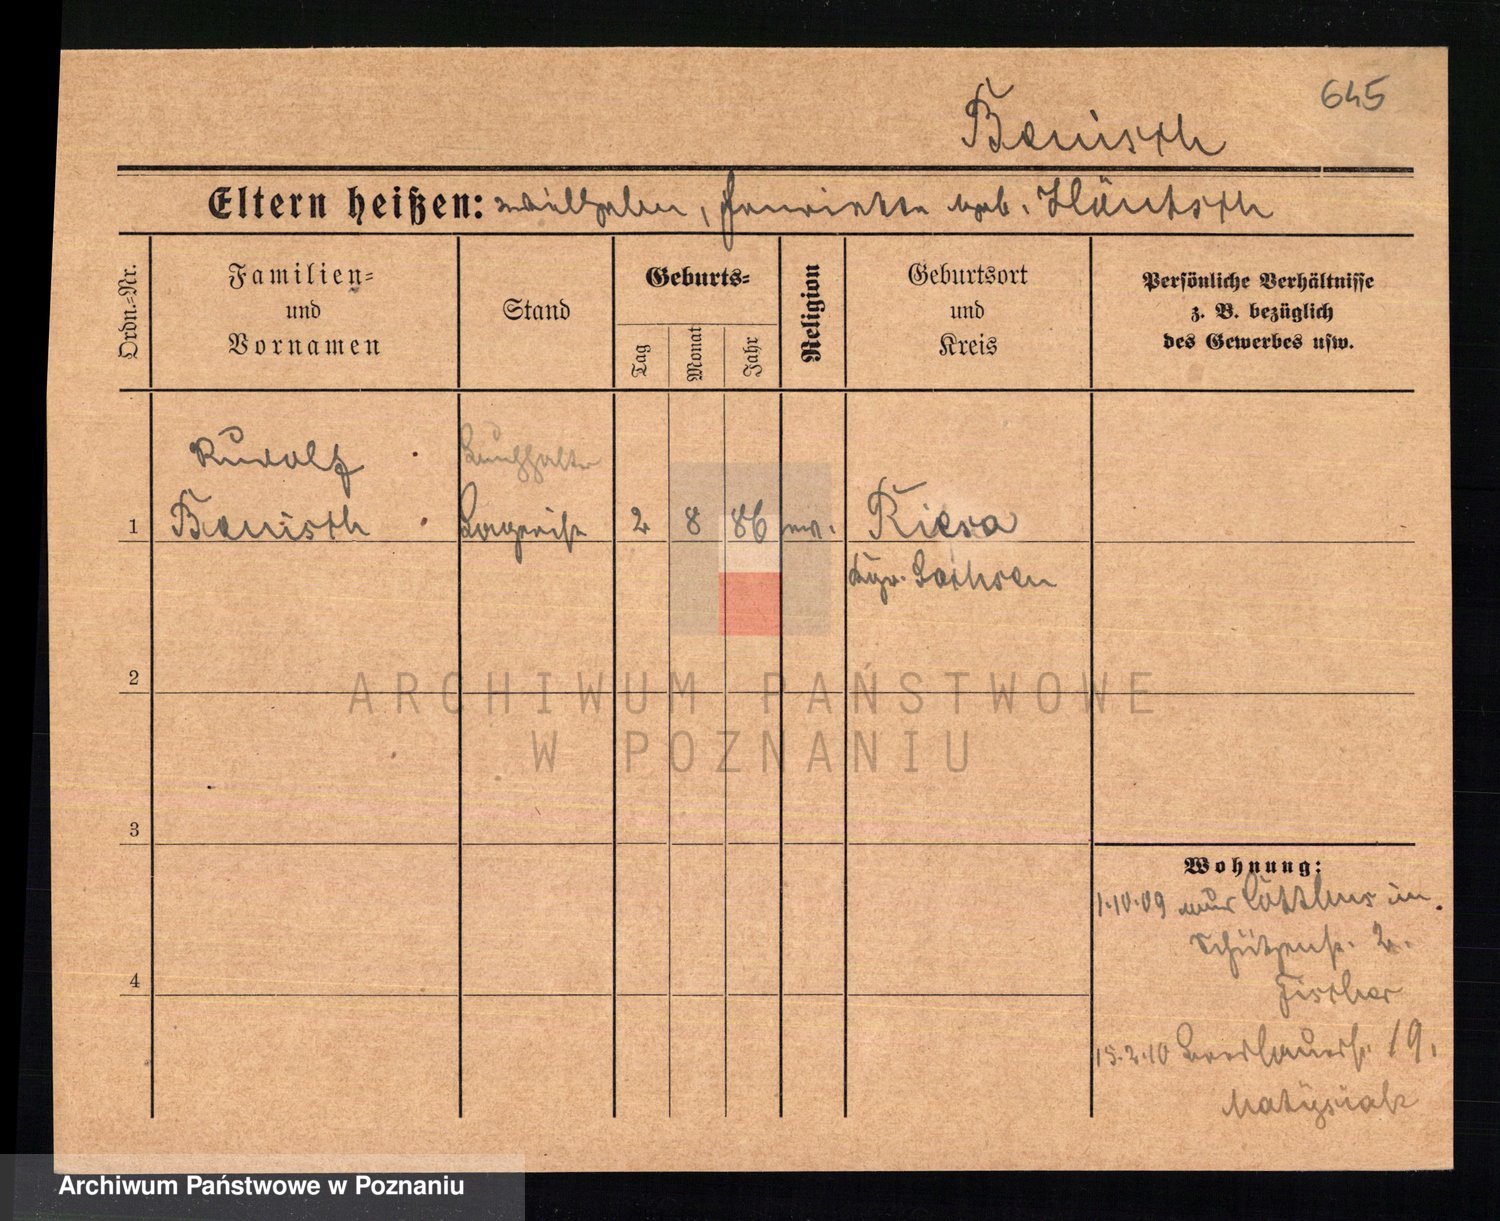 645
Benisch
Eltern heißen: Wilhelm, Henriette geb. Häntsch
Ordn.=Nr.
Familien=
und
Vornamen
Stand
Geburts=
Tag
Monat
Jahr
Religion
Geburtsort
und
Kreis
Persönliche Verhältnisse
z. B. bezüglich
des Gewerbes usw.
Rudolf
Buchhalter
1 Benisch Lagerist 2 8 86 ev. Riesa
Kgr. Sachsen
2
3
4
Wohnung:
1.10.09 aus Cottbus in
Schützenstr. 2.
Fischer
15.2.10 Breslauerstr. 19.
Matysiak
ARCHIWUM PAŃSTWOWE
W POZNANIU
Archiwum Państwowe w Poznaniu